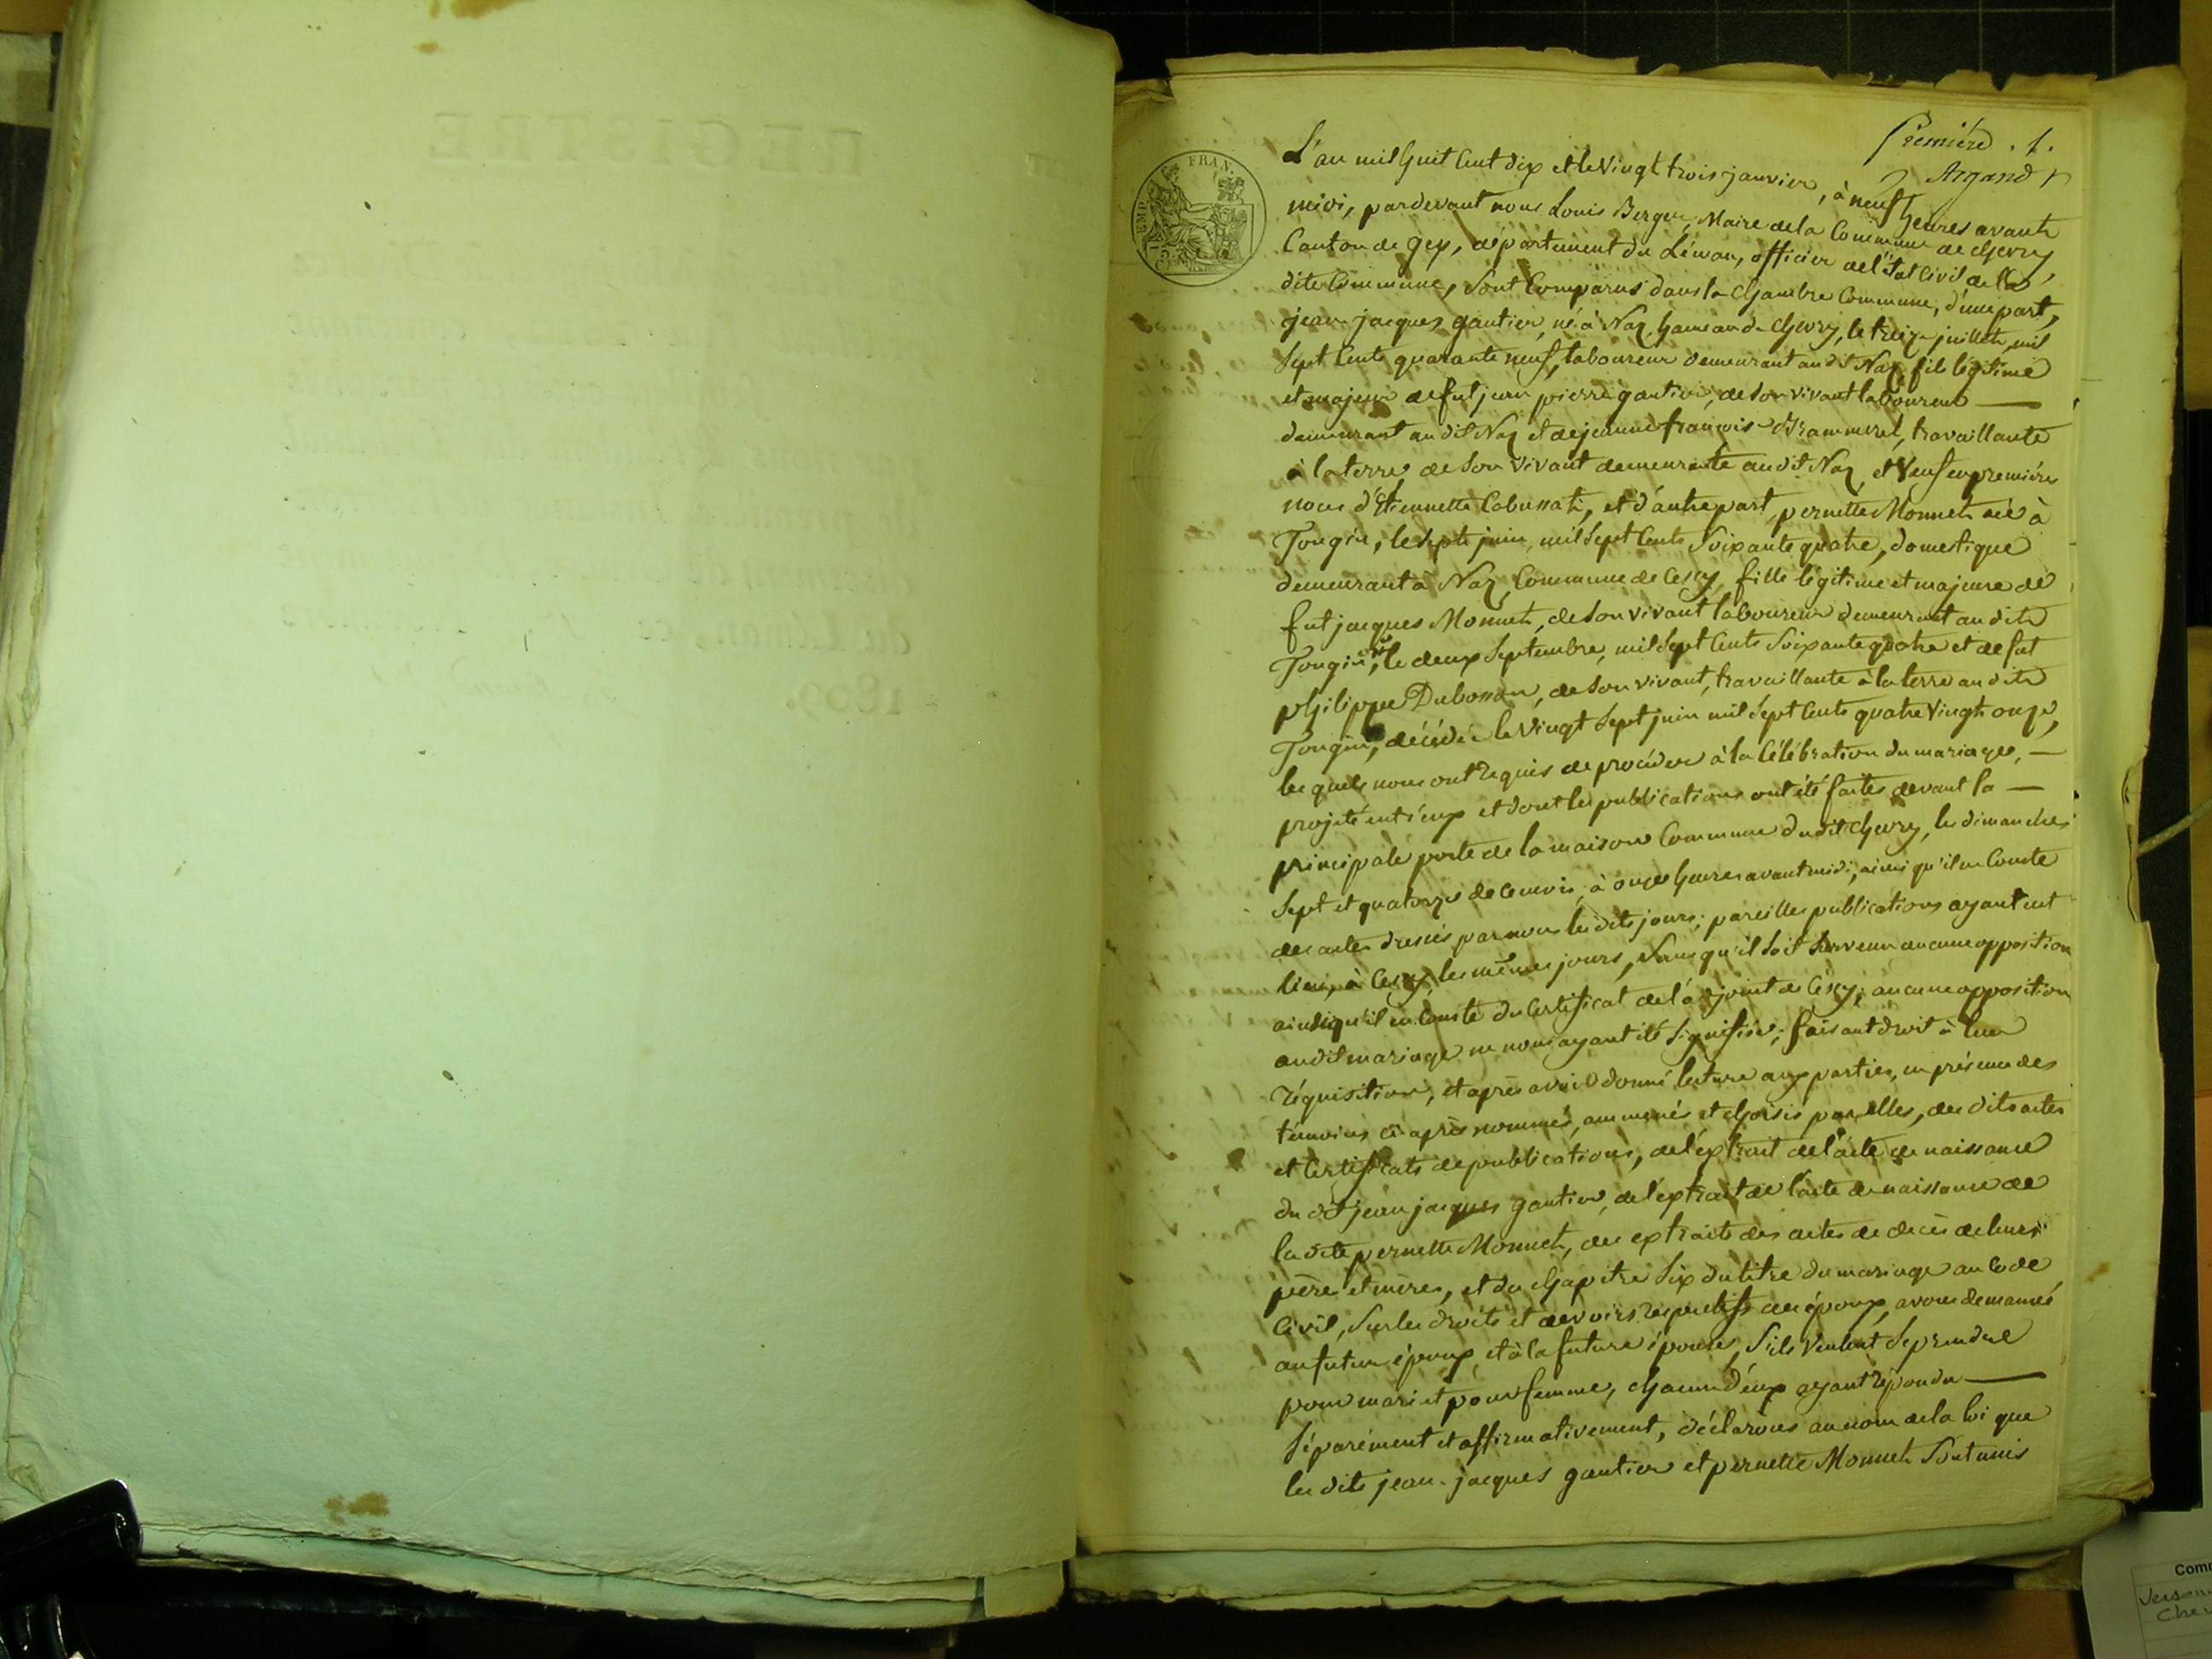 Première . 1.
Argand
L'an mil huit Cent dix et le Vingt trois janvier, à neuf heures avant
midi, pardevant nous Louis Berger, Maire de la Commune de chevry,
Canton de gex, département du Léman, officier de l'état Civil de la
dite Commune, Sont Comparus dans la chambre Commune, d'une part,
jean-jacques gautier, né à Naz hameau de chevry, le treize juillet, mil
Sept Cents quarante neuf, laboureur demeurant audit Naz, fils légitime
et majeur de fut jean pierre gautier, de son vivant laboureur
demeurant audit Naz et de jeanne françoise travaillante
à la terre, de Son vivant demeurante audit Naz, et Veuf en première
noces d'Etiennette et d'autre part, pernette Monnet née à
Tougin, le Sept juin, mil Sept Cents Soixante quatre, domestique
demeurant à Naz, Commune de Cessy, fille légitime et majeure de
fut jacques Monnet, de son vivant laboureur demeurant au dit
Tougin, le deux Septembre, mil Sept Cents Soixante quatre et de fut
philippe Dubosson, de Son vivant, travaillante à la terre au dit
Tougin, décédée le Vingt Sept juin mil Sept Cents quatre Vingt onze,
les quels nous ont requis de procéder à la Célébration du mariage,
projeté entr'eux et dont les publications ont été faites devant la
principale porte de la maison Commune dudit chevry, les dimanches
Sept et quatorze de ce mois, à onze heures avant midi, ainsi qu'il en Conste
des actes dressés par nous lesdits jours; pareilles publications ayant eut
lieu, à Cessy, les mêmes jours, Sans qu'il soit Survenu aucune opposition
ainsi qu'il en Conste du Certificat de l'adjoint de Cessy; aucune opposition
audit mariage ne nous ayant été signifiée; faisant droit à leur
réquisition, et après avoir donné lecture aux parties, en présence des
témoins ci-après nommés, ammenés et choisis par elles, des dits actes
et Certificats de publications, de l'extrait de l'acte de naissance
du dit jean jacques gautier, de l'extrait de l'acte de naissance de
la dite pernette Monnet, des extraits des actes de décès de leurs
père et mères, et du chapitre Six du titre du mariage au Code
Civil, Sur les droits et devoirs respectifs des époux, avons demandé
au futur époux et à la future épouse, S'ils Veulent Se prendre
pour mari et pour femme, chacun d'eux ayant répondu
Séparément et affirmativement, déclarons au nom de la loi que
les dits jean-jacques gautier et pernette Monnet Sont unis
REGISTRE
1809.
EMP. FRAN.
Com